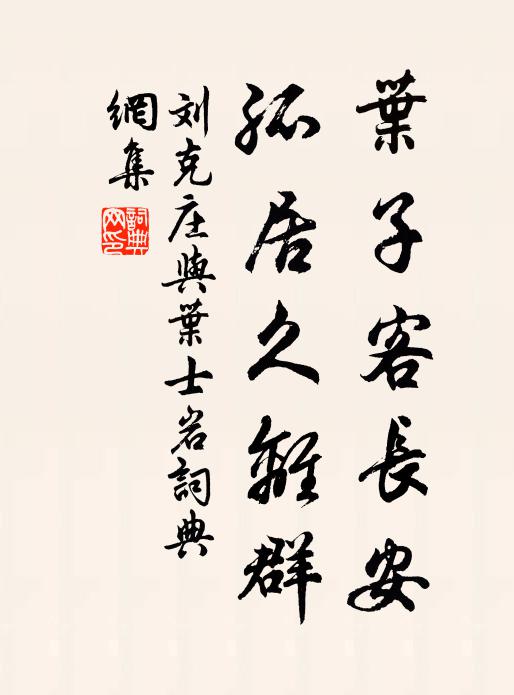 葉子客長安
孤居久離群
刘克庄與葉士岩詞典
網集
詞典網印